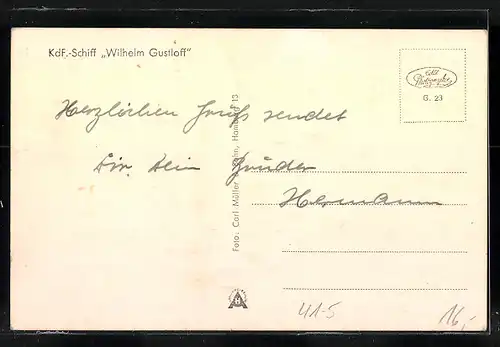 KdF.-Schiff „Wilhelm Gustloff"
Echt Photographie
G. 23
Herzlichen Gruß sendet
Dir Dein Bruder
Hermann
Foto: Carl Müller & Sohn, Hamburg 13
41-5
16,-